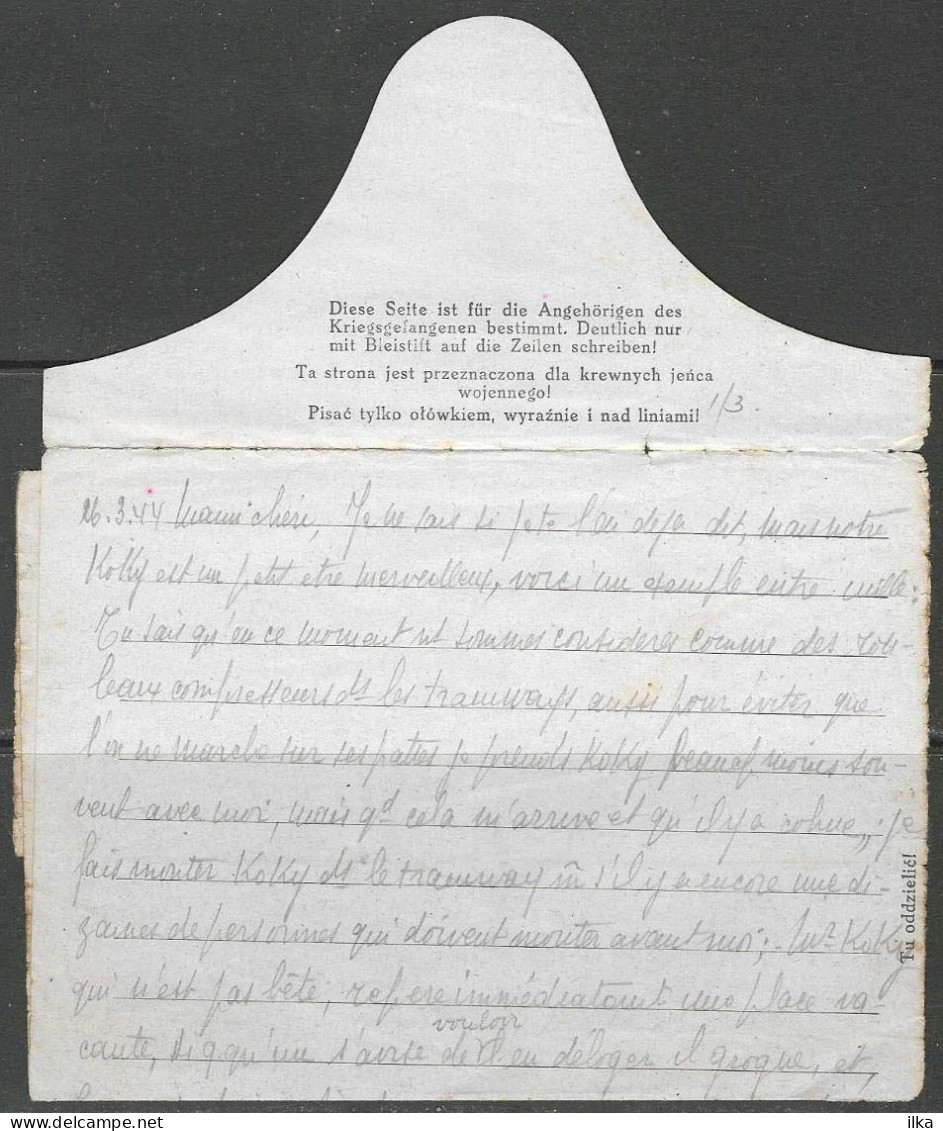 Diese Seite ist für die Angehörigen des
Kriegsgefangenen bestimmt. Deutlich nur
mit Bleistift auf die Zeilen schreiben!
Ta strona jest przeznaczona dla krewnych jeńca
wojennego!
Pisać tylko ołówkiem, wyraźnie i nad liniami!
1/3.
26.3.44 chérie, Je ne sais si je te l'ai deja dit, mais notre
Kolky est un petit etre merveilleux, voici un exemple entre mille:
Tu sais qu'en ce moment ns sommes consideres comme des rou-
leaux compresseurs ds les tramways, aussi pour éviter que
l'on ne marche sur ses pattes je prends Kolky beauc. moins sou-
vent avec moi, mais qd cela m'arrive et qu'il y a cohue, je
fais monter Kolky ds le tramway m̃ s'il y a encore une di-
zaines de personnes qui doivent monter avant moi; Mr Kolky
qui n'est pas bête, repere immédiatement une place va-
vouloir
cante, si qqu'un s'avise de l'en déloger il grogne, et,
Tu oddzielić!
ilka